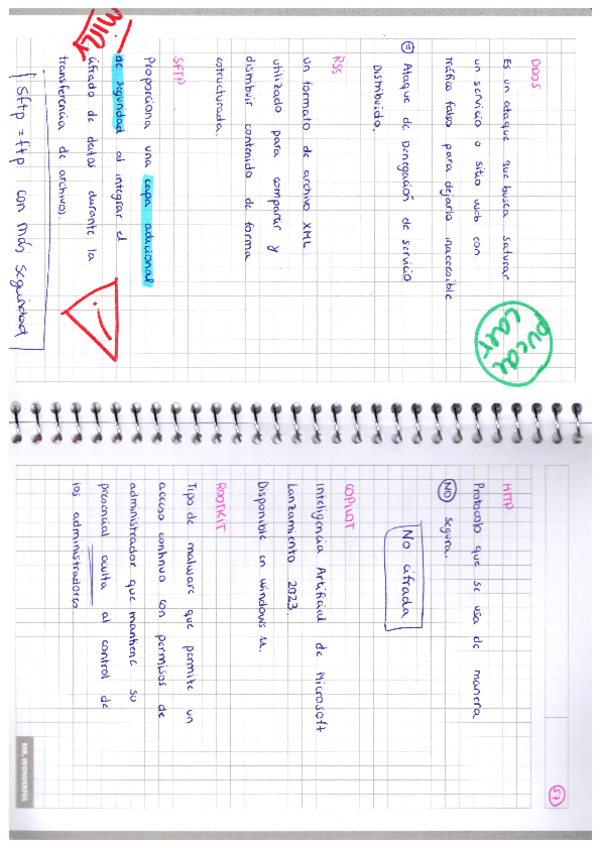 DDOS
Es un ataque que busca saturar
un servicio o sitio web con
tráfico falso para dejarlo inaccesible
Ataque de Denegación de servicio
Distribuido.
RSS
un formato de archivo XML
utilizado para compartir y
distribuir contenido de forma
estructurada.
SFTP
Proporciona una capa adicional
de seguridad al integrar el
cifrado de datos durante la
transferencia de archivos.
¡ Sftp = ftp con más seguridad
57
HTTP
Protocolo que se usa de manera
NO segura.
No cifrada
COPILOT
Inteligencia Artificial de Microsoft
Lanzamiento 2023.
Disponible en windows 11.
ROOTKIT
Tipo de malware que permite un
acceso continuo con permisos de
administrador que mantiene su
presencial oculta al control de
los administradores.
MR. WONDERFUL